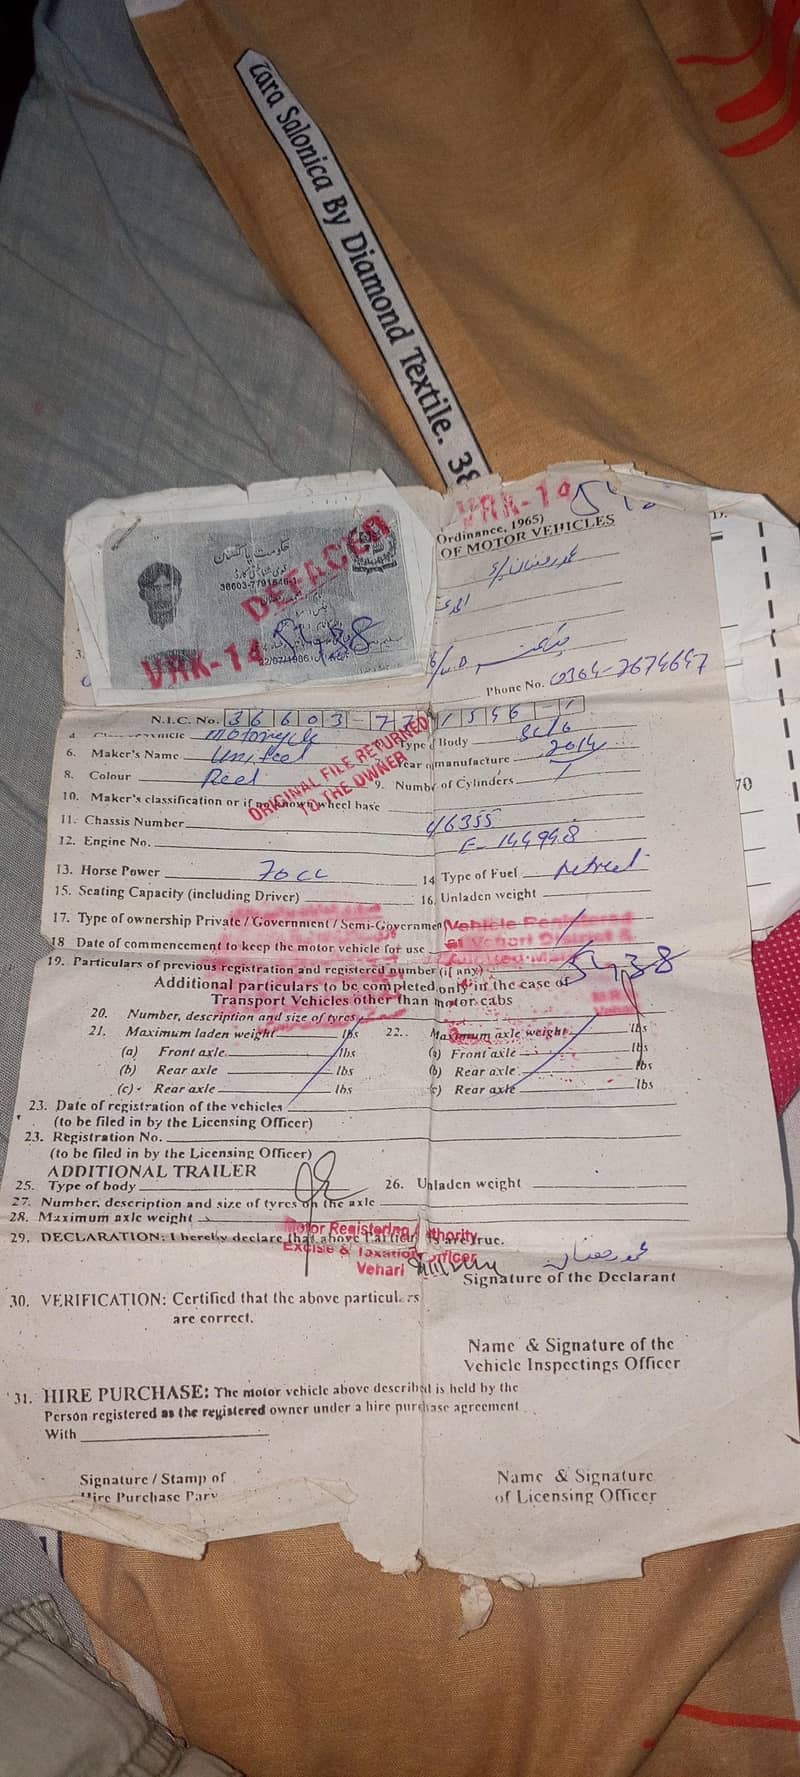 Zara Salonica By Diamond Textile. 38
VRK-14
Ordinance, 1965)
OF MOTOR VEHICLES
حکومت پاکستان
قومی شناختی کارڈ
DEFACED
VRK-14 5438
22/07/1986
محمد رمضان
Phone No. 0304-7674647
N.I.C. No. 36603-7715461
Motorcycle Type of Body Solo
6. Maker's Name United Year of manufacture 2014
8. Colour Red 9. Number of Cylinders 1
ORIGINAL FILE RETURNED
TO THE OWNER
10. Maker's classification or if not known wheel base
11. Chassis Number 46355
12. Engine No. E-144998
13. Horse Power 70cc 14 Type of Fuel Petrol
15. Seating Capacity (including Driver) 16. Unladen weight
17. Type of ownership Private / Government / Semi-Government
Vehicle Registered
at Vehari District &
18 Date of commencement to keep the motor vehicle for use
19. Particulars of previous registration and registered number (if any) 5438
Additional particulars to be completed only in the case of
Transport Vehicles other than motor cabs
20. Number, description and size of tyres
21. Maximum laden weight lbs 22. Maximum axle weight lbs
(a) Front axle lbs (a) Front axle lbs
(b) Rear axle lbs (b) Rear axle lbs
(c) Rear axle lbs (c) Rear axle lbs
23. Date of registration of the vehicles
(to be filed in by the Licensing Officer)
23. Registration No.
(to be filed in by the Licensing Officer)
ADDITIONAL TRAILER
25. Type of body 26. Unladen weight
27. Number, description and size of tyres on the axle
28. Maximum axle weight
29. DECLARATION: I hereby declare that above Particulars are true.
Motor Registering Authority
Excise & Taxation Officer
Vehari
محمد رمضان
Signature of the Declarant
30. VERIFICATION: Certified that the above particulars
are correct.
Name & Signature of the
Vehicle Inspectings Officer
31. HIRE PURCHASE: The motor vehicle above described is held by the
Person registered as the registered owner under a hire purchase agreement
With
Signature / Stamp of Name & Signature
Hire Purchase Pary of Licensing Officer